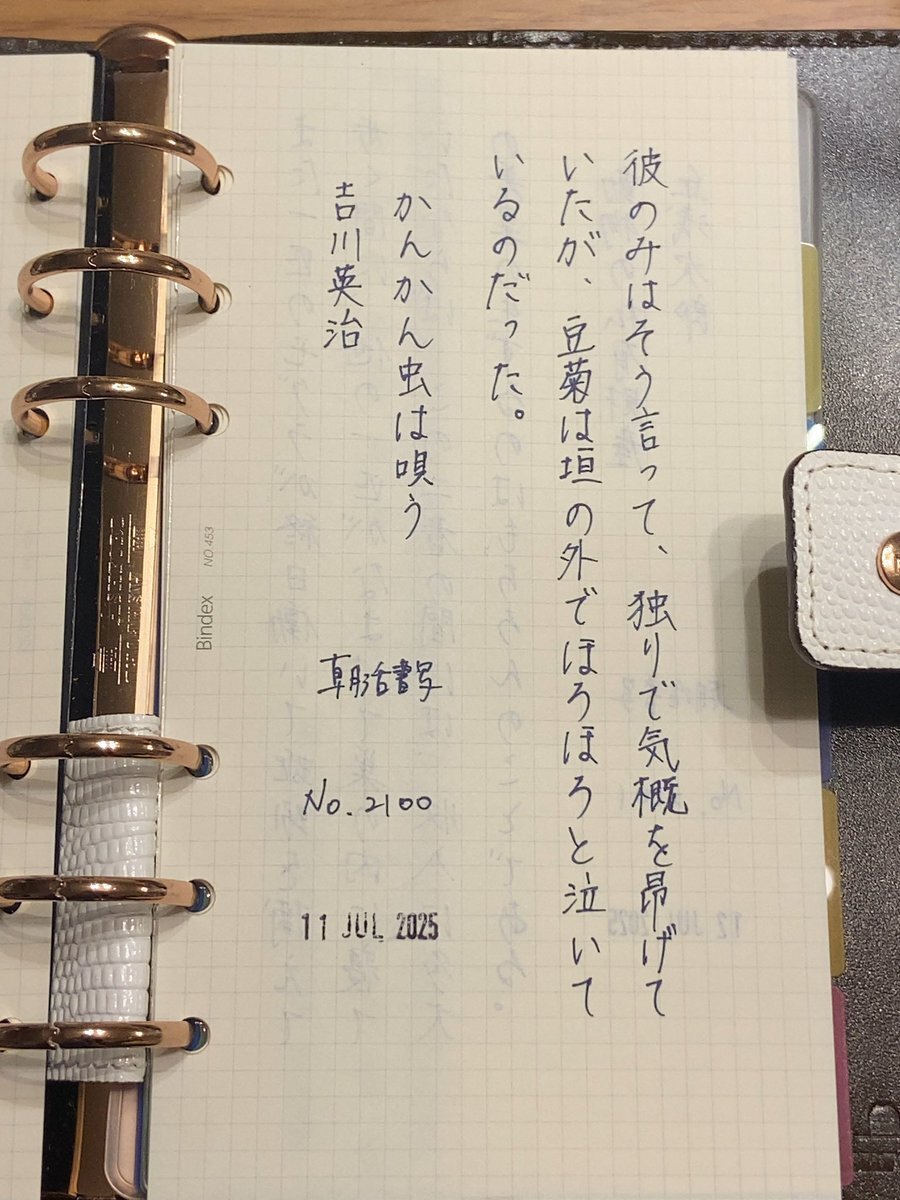 彼のみはそう言って、独りで気概を昂げて
いたが、豆菊は垣の外でほろほろと泣いて
いるのだった。
かんかん虫は唄う
吉川英治
朝活書写
No. 2100
11 JUL 2025
Bindex NO.453